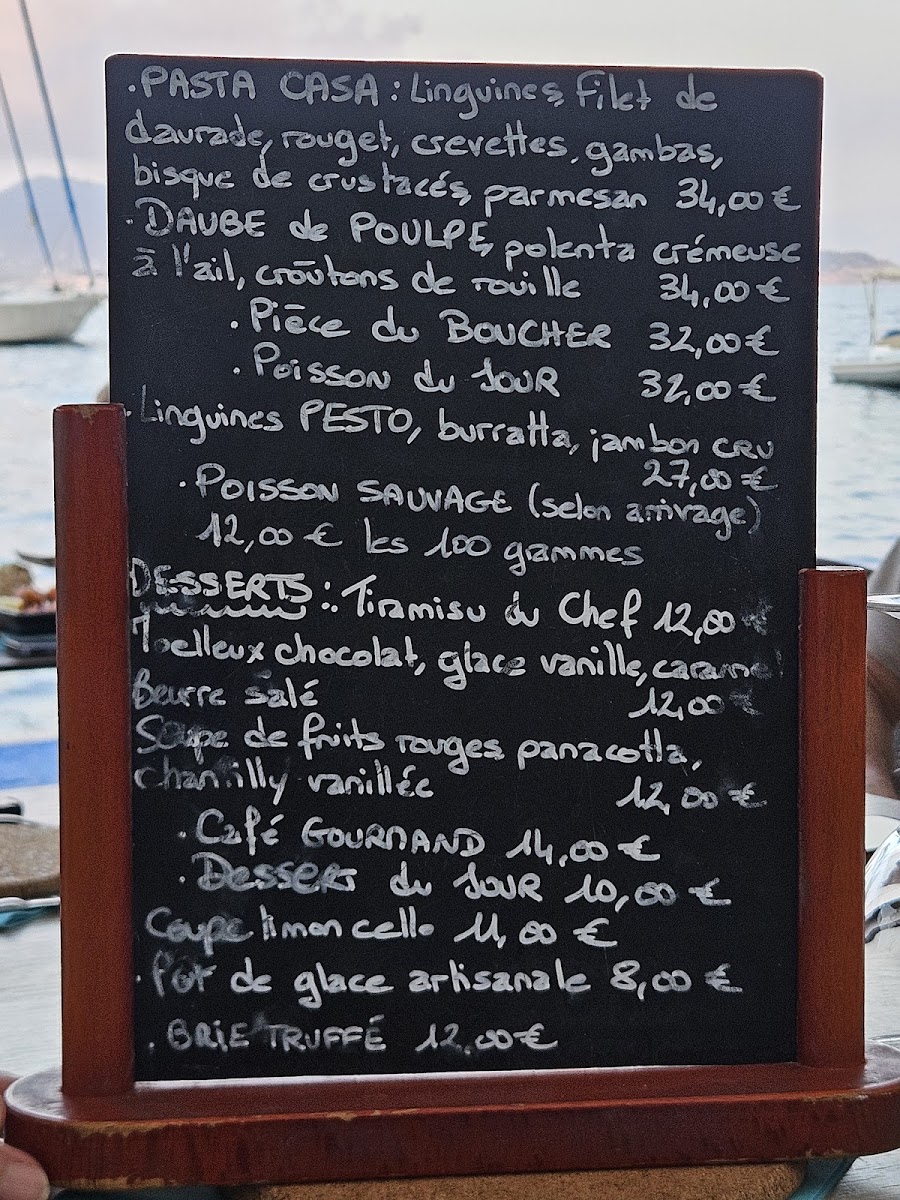 · PASTA CASA : Linguines, Filet de
daurade, rouget, crevettes, gambas,
bisque de crustacés, parmesan 34,00 €
· DAUBE de POULPE, polenta crémeuse
à l'ail, croûtons de rouille 34,00 €
· Pièce du BOUCHER 32,00 €
· Poisson du JOUR 32,00 €
· Linguines PESTO, burratta, jambon CRU
27,00 €
· POISSON SAUVAGE (selon arrivage)
12,00 € les 100 grammes
DESSERTS : . Tiramisu du Chef 12,00 €
Moelleux chocolat, glace vanille, caramel
Beurre salé 12,00 €
Soupe de fruits rouges panacotta,
chantilly vanillée 12,00 €
· Café GOURMAND 14,00 €
· Dessert du JOUR 10,00 €
Coupe limoncello 11,00 €
· Pot de glace artisanale 8,00 €
· BRIE TRUFFÉ 12,00 €